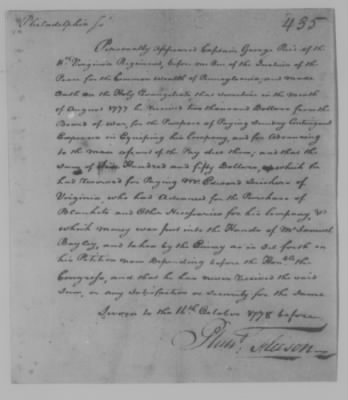 Philadelphia Ss
435
Personally appeared Captain George Rice of the
11th Virginia Regiment, before me One of the Justices of the
Peace for the Common Wealth of Pennsylvania, and made
Oath on the Holy Evangelists that sometime in the month
of August 1777 he Received two thousand Dollars from the
Board of War, for the Purpose of Paying Sundry Contingent
Expences in Equiping his Company, and for Advancing
to the men a part of the Pay due them, and that the
Sum of Hundred and fifty Dollars, of which he
had Reserved for Paying of
Virginia, who had Advanced for the Purchase of
Blankets and Other Necessaries for his Company, &
which money was put into the Hands of Mr Samuel
Bayley, and taken by the Enemy as is Set forth in
his Petition now Depending before the Honble the
Congress, and that he has never Received the said
Sum, or any Satisfaction or Security for the Same
Sworn to the 14th October 1778 before
Plunt. Fleeson